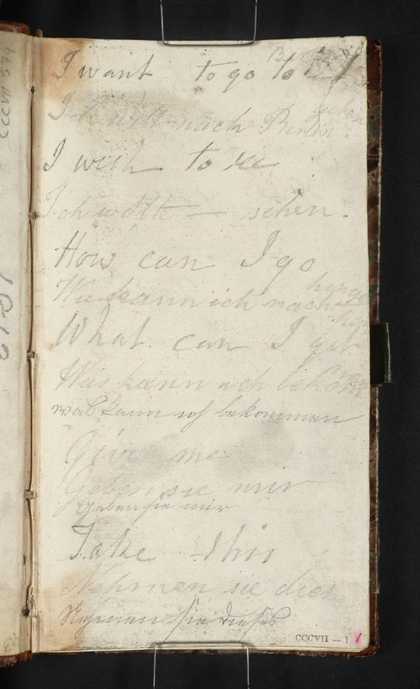 I want to go to
Ich will nach Berlin
I wish to see
Ich wollte — sehen.
How can I go
Wie kann ich nach
What can I get
Was kann ich bekom
was kann ich bekommen
Give me
Geben sie mir
Geben sie mir
Take this
Nehmen sie dies
Nehmen sie dieses
CCCVII — 1